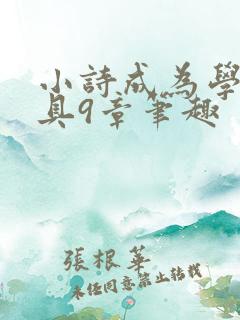 小詩成為學
具9章筆趣
張根華
未經同意禁止轉載